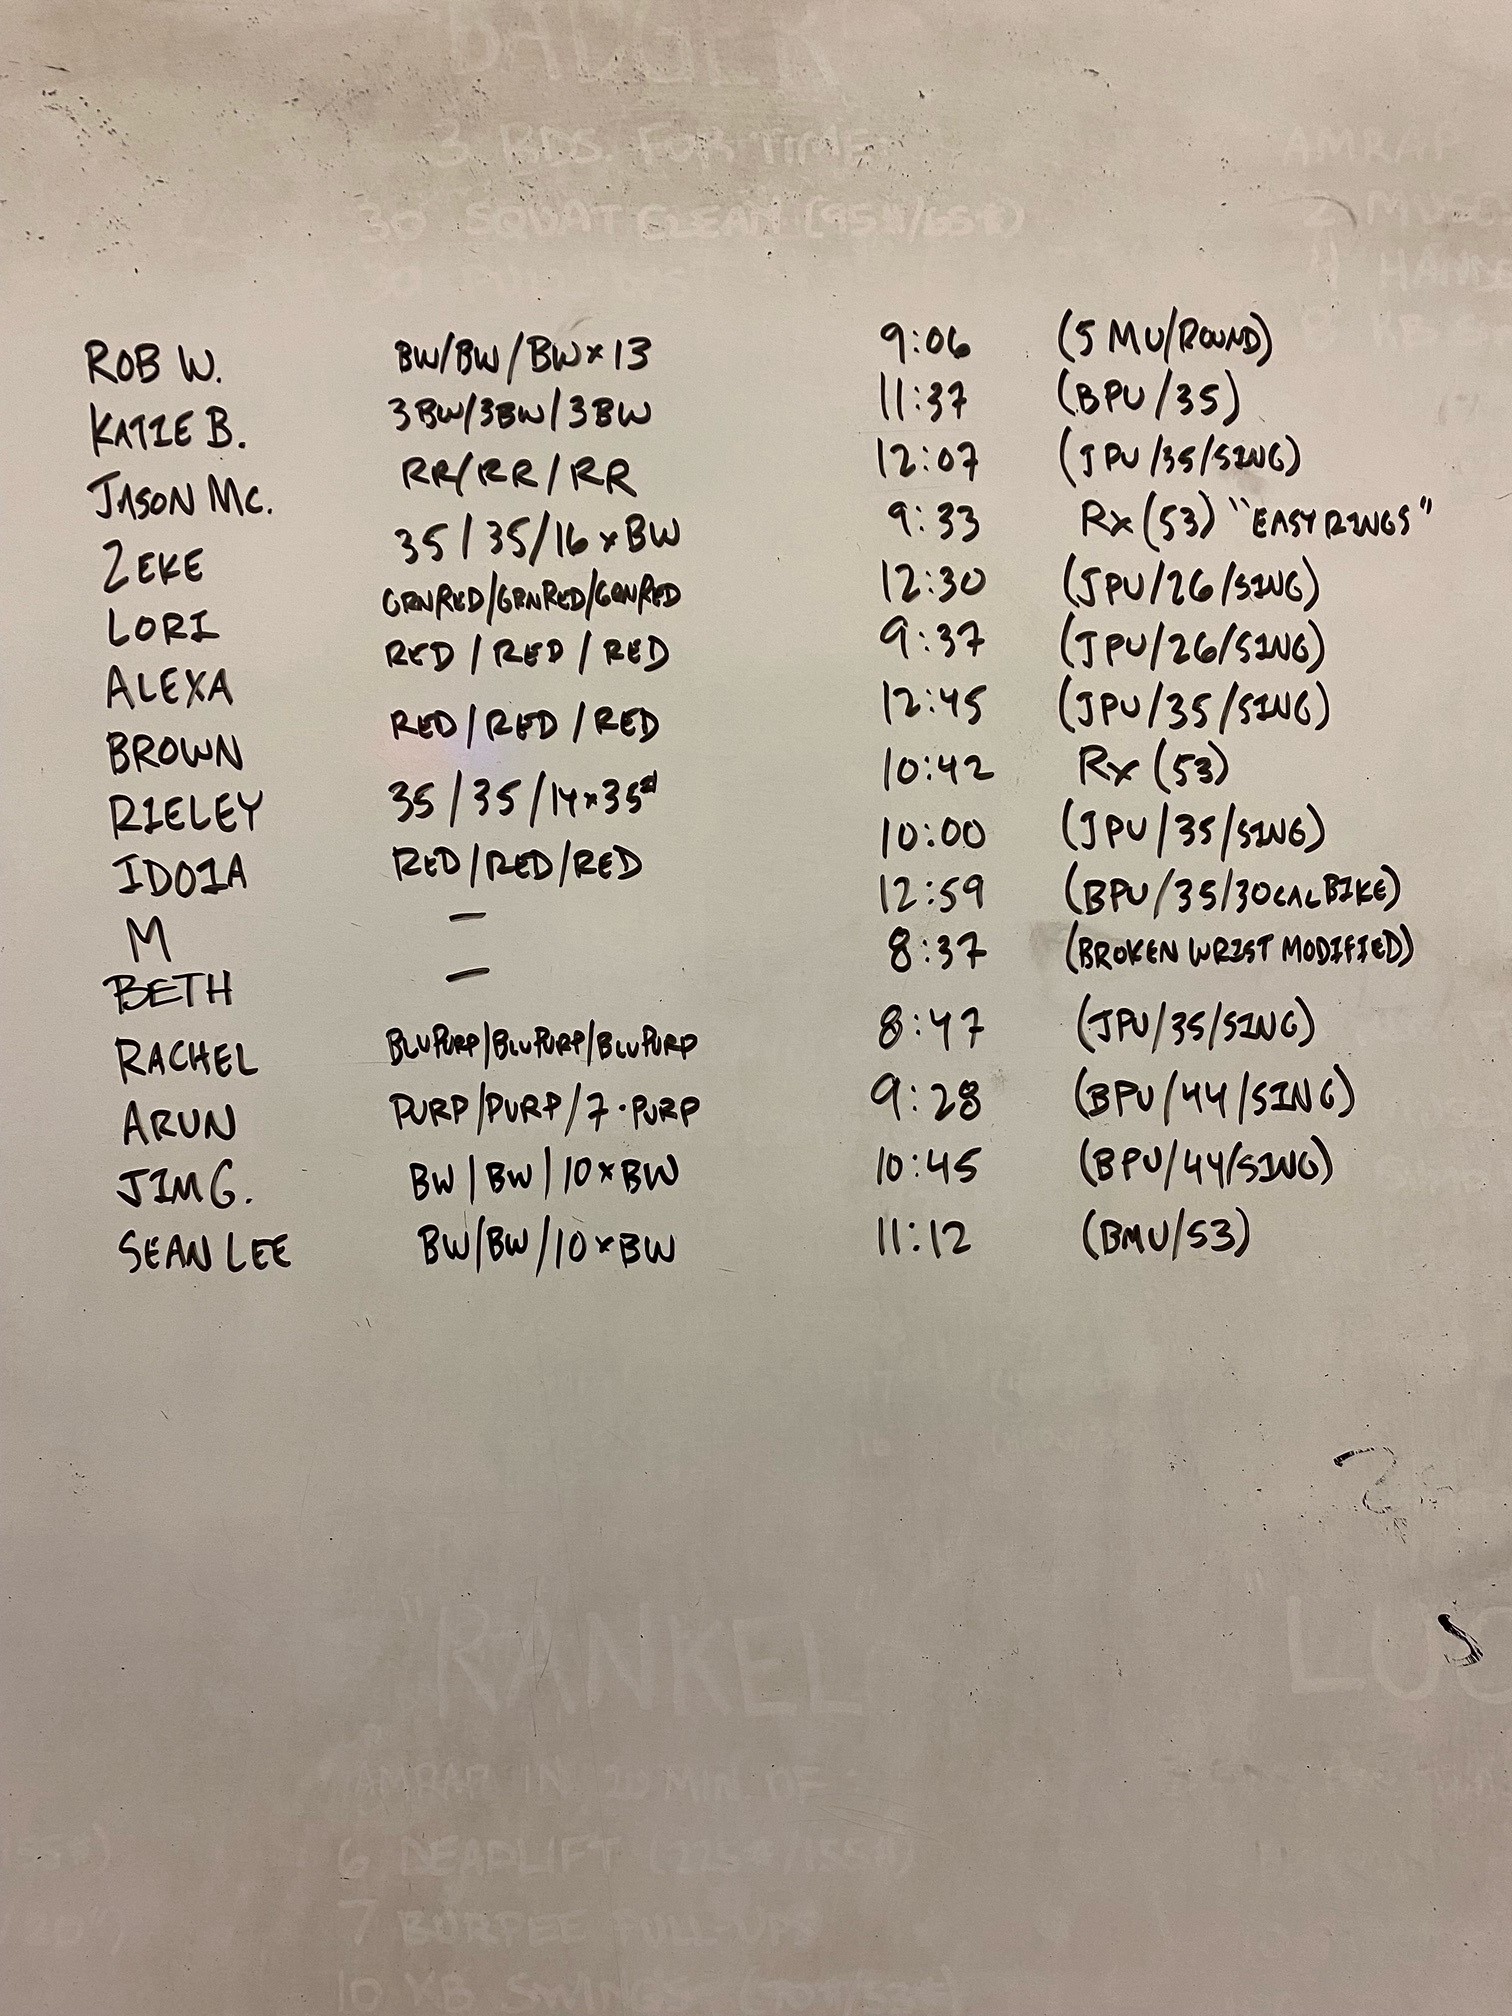 BADGER
3 RDS. FOR TIME
30 SQUAT CLEAN (95#/65#)
30 PULL-UPS
AMRAP
2
4
ROB W. BW/BW/BW×13 9:06 (5 MU/ROUND)
KATIE B. 3BW/3BW/3BW 11:37 (BPU/35)
JASON MC. RR/RR/RR 12:07 (JPU/35/SING)
ZEKE 35/35/16×BW 9:33 Rx (53) "EASY RINGS"
LORI GRNRED/GRNRED/GRNRED 12:30 (JPU/26/SING)
ALEXA RED/RED/RED 9:37 (JPU/26/SING)
BROWN RED/RED/RED 12:45 (JPU/35/SING)
RIELEY 35/35/14×35# 10:42 Rx (53)
IDOIA RED/RED/RED 10:00 (JPU/35/SING)
M — 12:59 (BPU/35/30CAL BIKE)
BETH — 8:37 (BROKEN WRIST MODIFIED)
RACHEL BLUPURP/BLUPURP/BLUPURP 8:47 (JPU/35/SING)
ARUN PURP/PURP/7·PURP 9:28 (BPU/44/SING)
JIM G. BW/BW/10×BW 10:45 (BPU/44/SING)
SEAN LEE BW/BW/10×BW 11:12 (BMU/53)
"RANKEL"
AMRAP IN 20 MIN OF
6 DEADLIFT (225#/155#)
7 BURPEE PULL-UPS
10 KB SWINGS